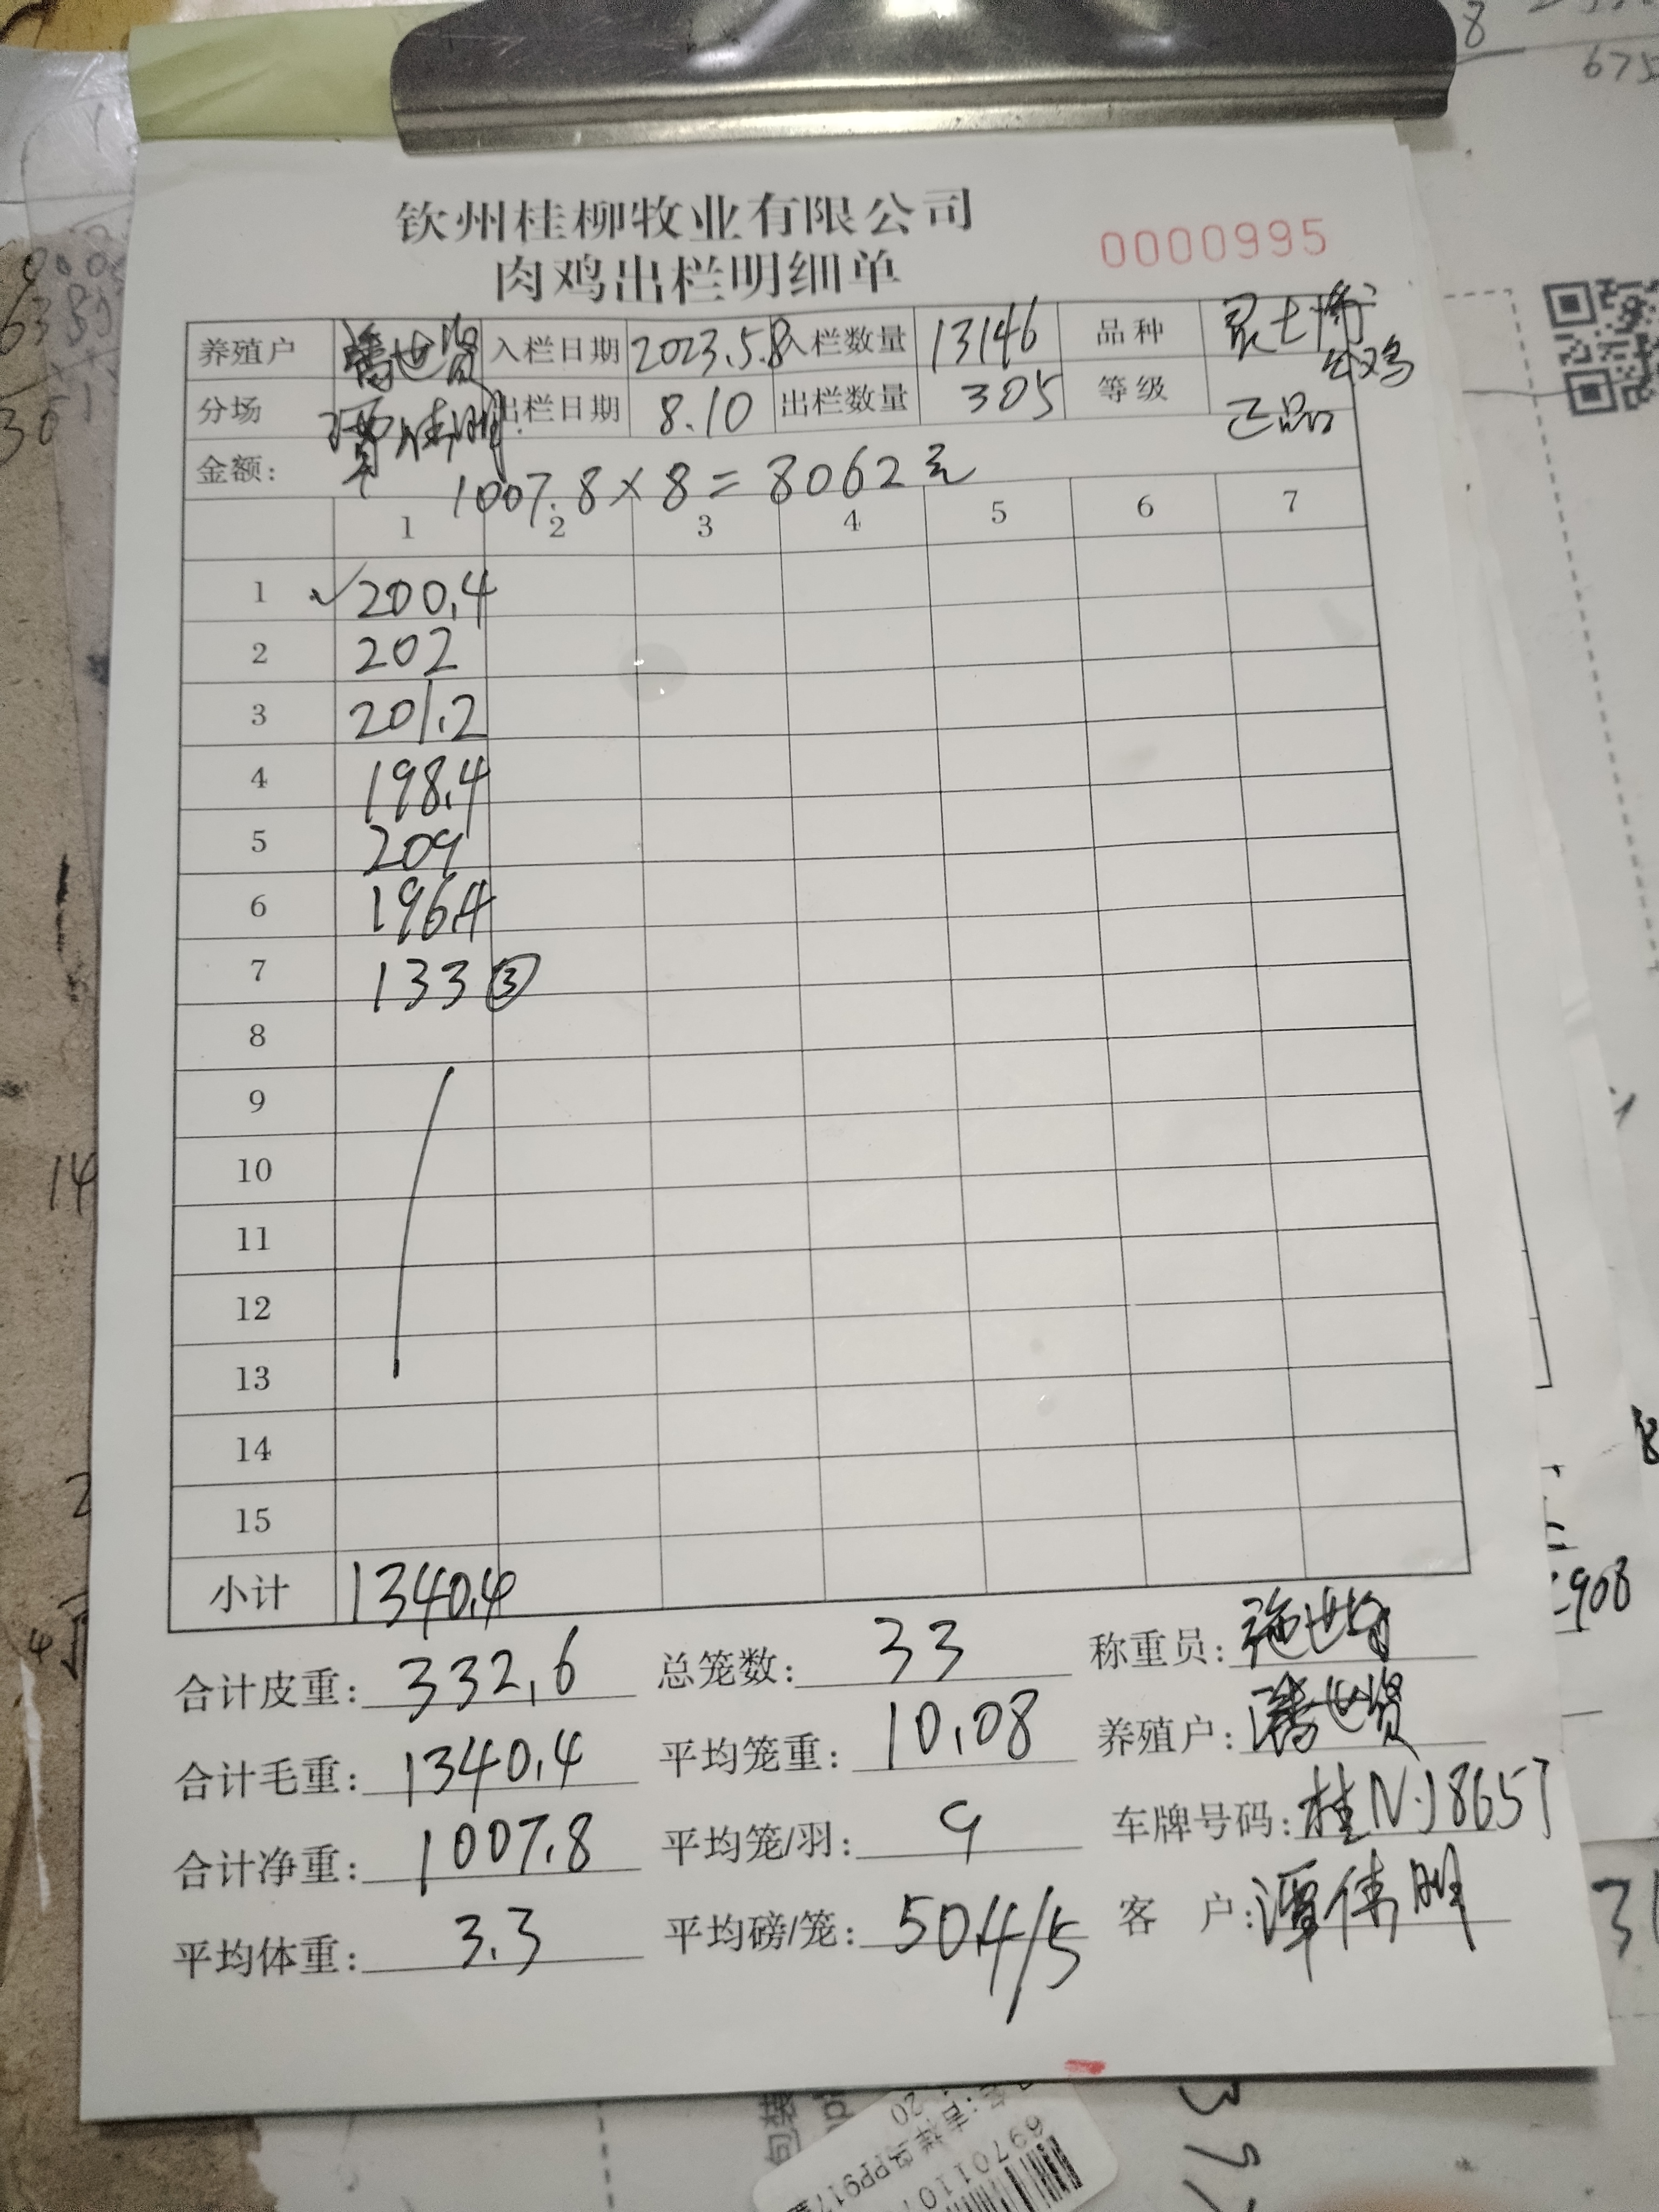 钦州桂柳牧业有限公司
肉鸡出栏明细单
0000995
养殖户 潘世贤 入栏日期 2023.5.8 入栏数量 13146 品种 灵士博公鸡
分场 谭伟明 出栏日期 8.10 出栏数量 305 等级 正品
金额: 1007.8×8=8062元
1 2 3 4 5 6 7
1 ✓200.4
2 202
3 201.2
4 198.4
5 209
6 196.4
7 133 ③
8
9
10
11
12
13
14
15
小计 1340.4
合计皮重: 332.6 总笼数: 33 称重员:
合计毛重: 1340.4 平均笼重: 10.08 养殖户: 潘世贤
合计净重: 1007.8 平均笼/羽: 9 车牌号码: 桂N·J8657
平均体重: 3.3 平均磅/笼: 50.4/5 客 户: 谭伟明